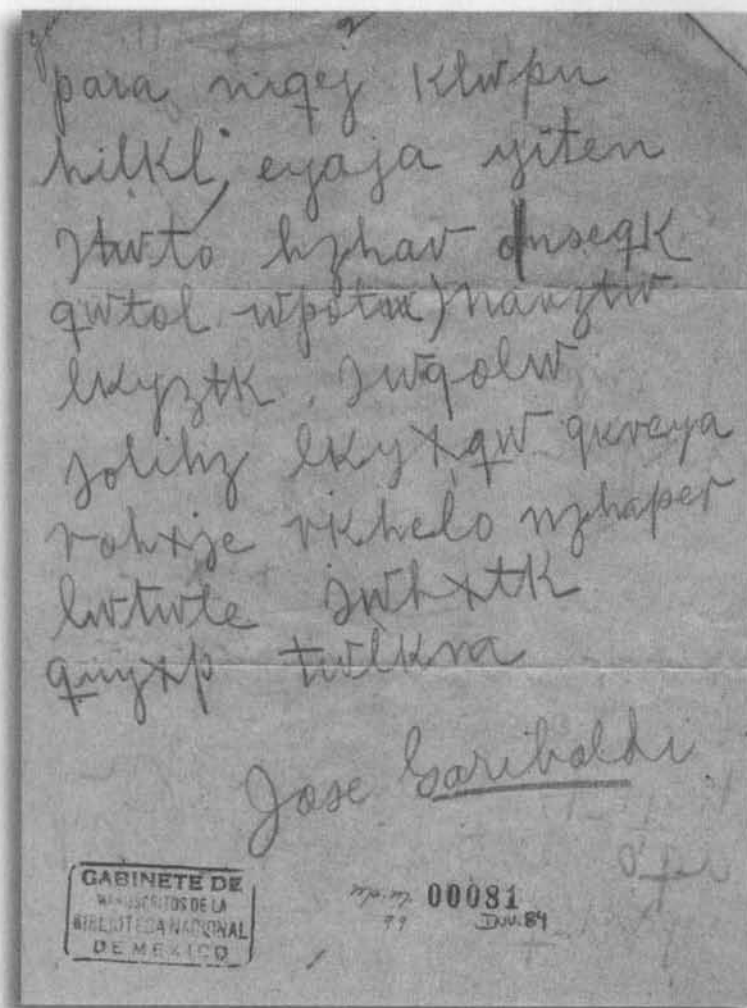 2
para niqej klwpu
hilkl, eyaja yiten
hzhav onseqk
qwtol navztw
lkyztk. jwqolw
jolihz lkyxqw qkveya
rohxje rkhelo nzhaper
lwtwte jwhxtk
quyxp twlkna
Jose Garibaldi
GABINETE DE
MANUSCRITOS DE LA
BIBLIOTECA NACIONAL
DE MEXICO
00081